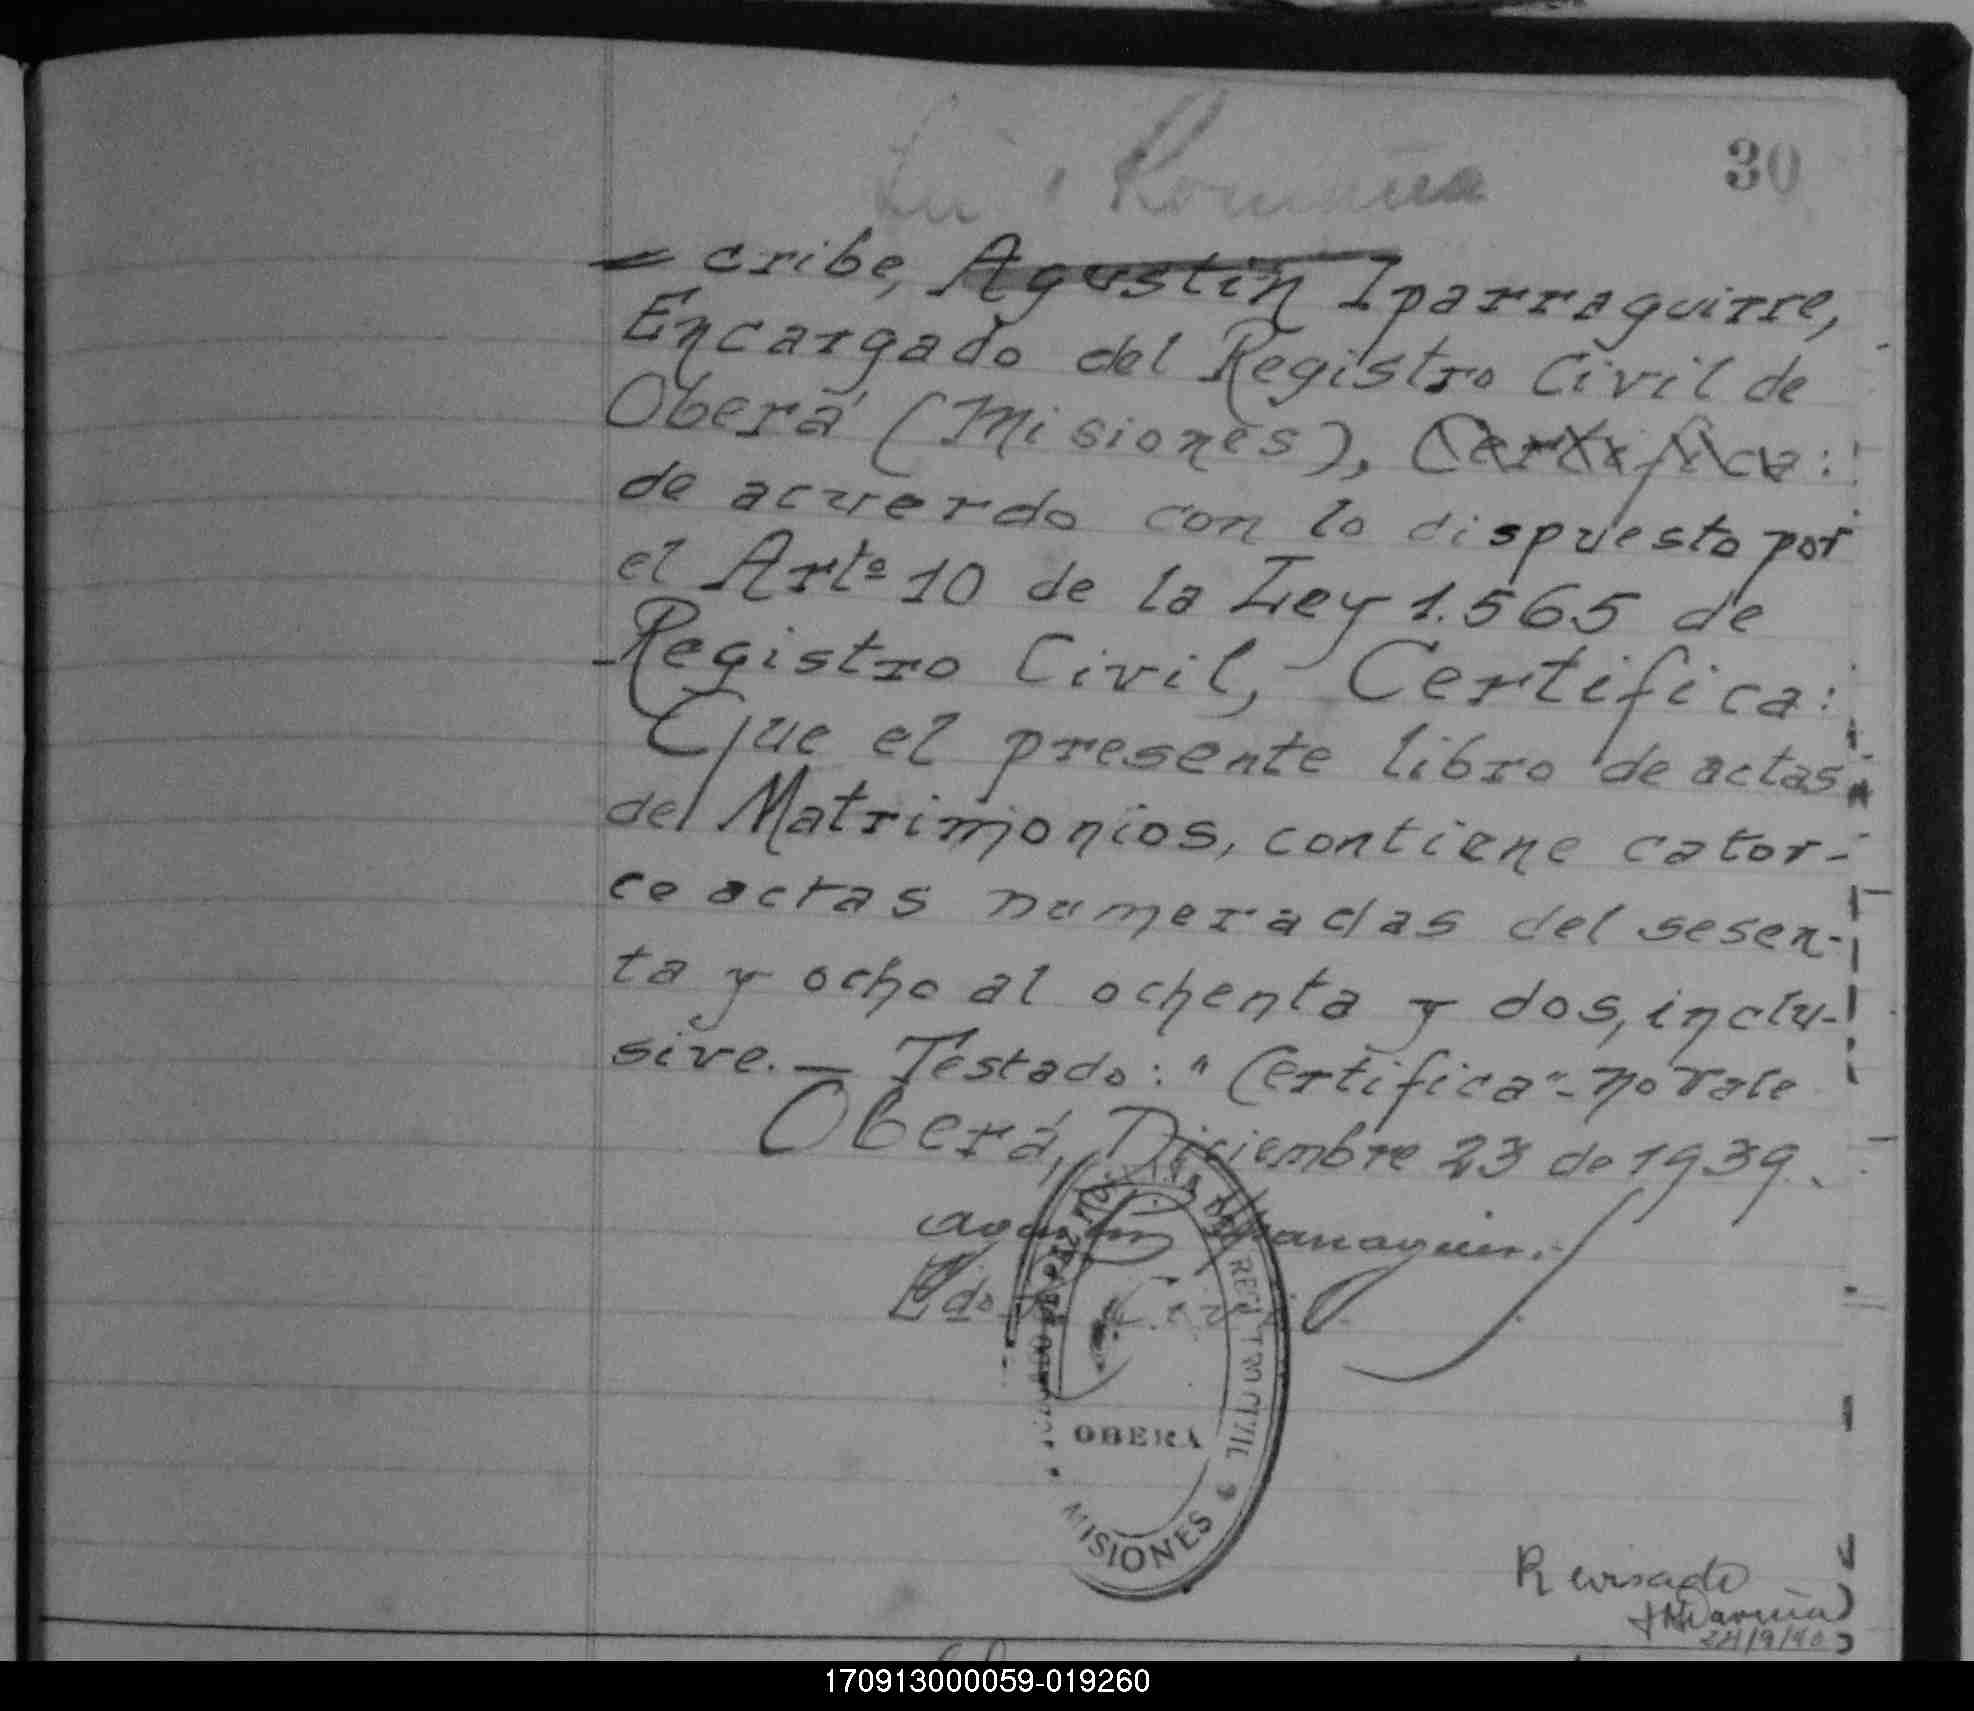 30
cribe, Agustin Iparraguirre,
Encargado del Registro Civil de
Oberá (Misiones), Certifica:
de acuerdo con lo dispuesto por
el Artº 10 de la Ley 1.565 de
Registro Civil, Certifica:
Que el presente libro de actas
de Matrimonios, contiene cator-
ce actas numeradas del sesen-
ta y ocho al ochenta y dos, inclu-
sive. — Testado: "Certifica" - no vale
Oberá, Diciembre 23 de 1939.
REGISTRO CIVIL
OBERA
MISIONES
Revisado
170913000059-019260